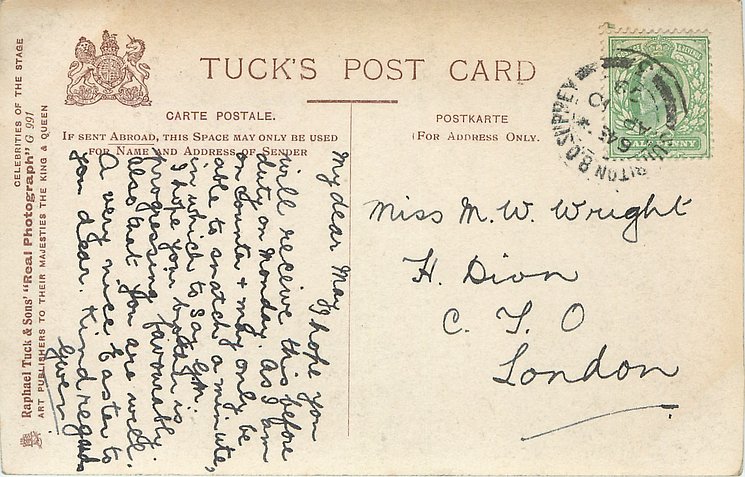 TUCK'S POST CARD
CARTE POSTALE.
POSTKARTE
IF SENT ABROAD, THIS SPACE MAY ONLY BE USED
FOR NAME AND ADDRESS OF SENDER
(FOR ADDRESS ONLY.
My dear May, I hope you
will receive this before
duty on Monday. As I am
on Counter & may only be
able to snatch a minute,
in which to say G.M.
I hope your brother is
progressing favourably
also that you are well.
A very nice Easter to
you dear. Kind regards
Gwen
Miss M. W. Wright
H. Divn
C. T. O
London
CELEBRITIES OF THE STAGE
Raphael Tuck & Sons' "Real Photograph" G 991
ART PUBLISHERS TO THEIR MAJESTIES THE KING & QUEEN
HALF PENNY
645
AP
10